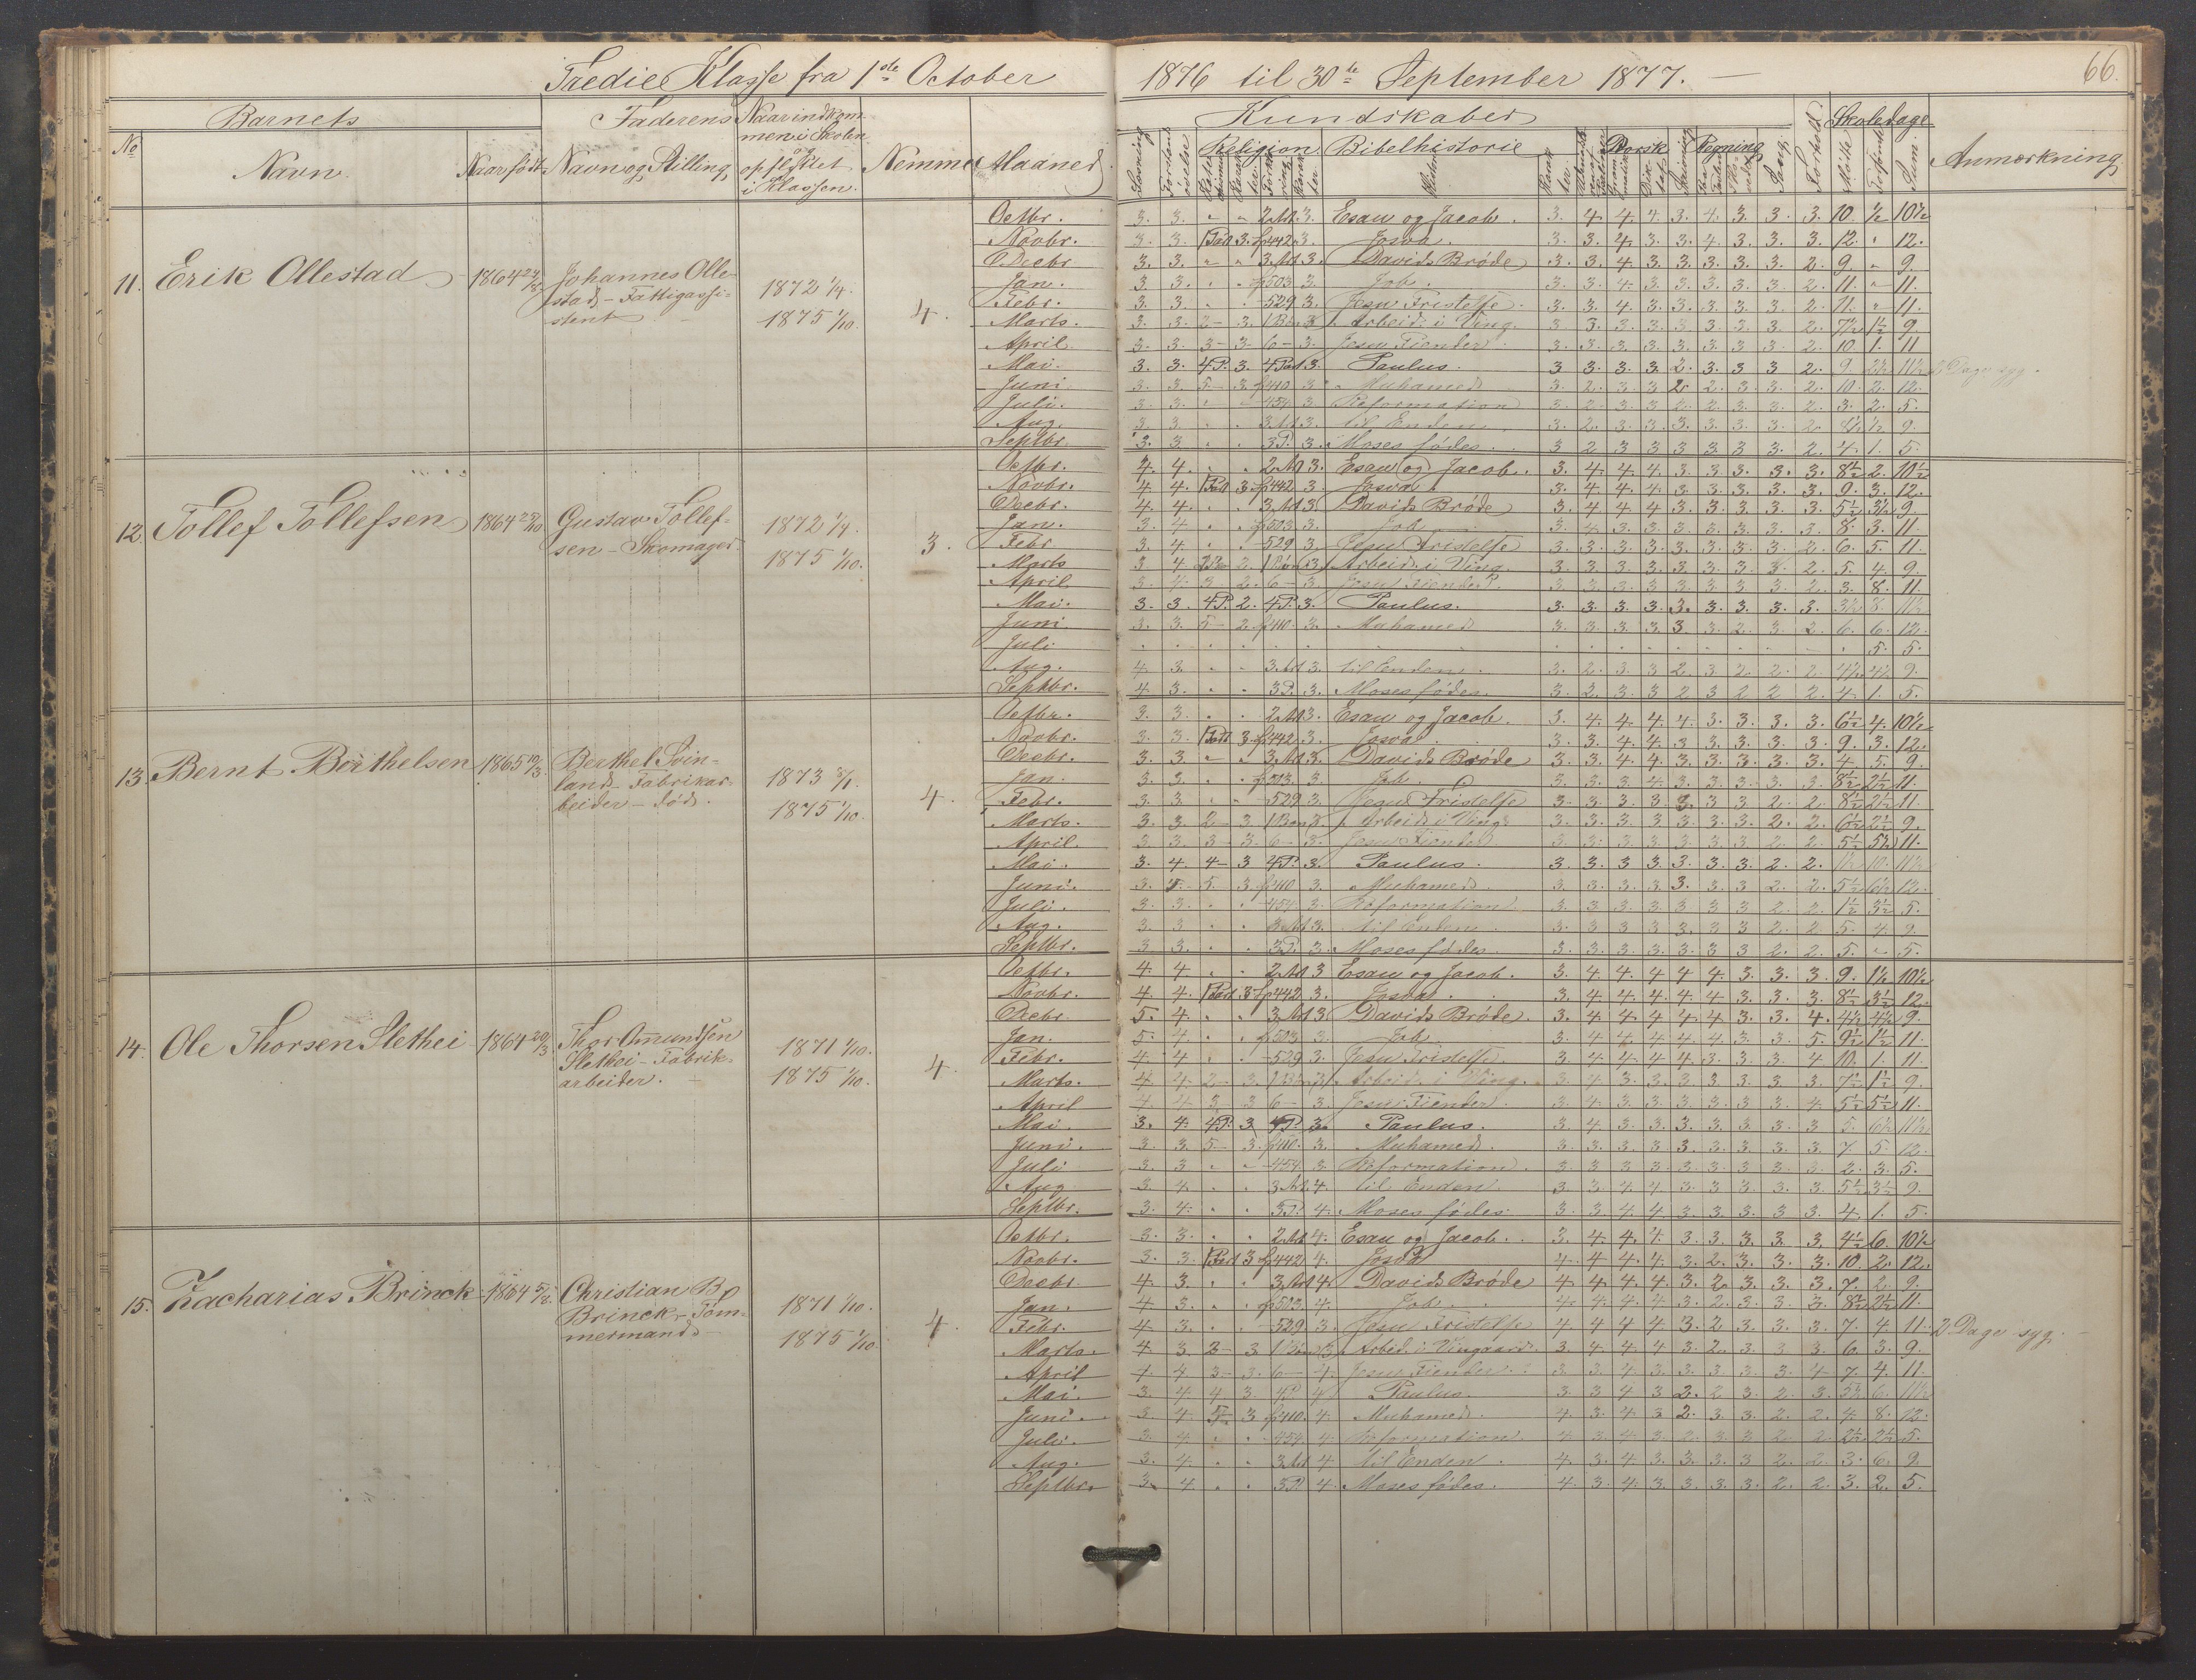 Tredie Klasse fra 1ste October 1876 til 30te September 1877. —
66.
Barnets
Faderens
Naar indkom-
men i Skolen
og
opflyttet
i Klassen.
No
Navn.
Naar født
Navn og Stilling,
Nemme
Maaned.
Kundskaber
Religion
Bibelhistorie
Norsk
Regning
Sang.
Forhold
Skoledage
Mødte
Forsømte
Sum
Anmærkning
11. Erik Ollestad 1864
Johannes Olle-
stad - Fattigassi-
stent
1872 1/4.
1875 1/10.
4.
Octbr. 3. 3. 2 Art. 3. Esau og Jacob. 3. 4. 4. 4. 3. 4. 3. 3. 3. 10. 1/2 10 1/2
Novbr. 3. 3. 3. 442. 3. Josva. 3. 3. 4. 3. 3. 4. 3. 3. 3. 12. 12.
Decbr. 3. 3. 3 Art 3. Davids Brøde 3. 3. 4. 3. 3. 3. 3. 3. 2. 9. 9.
Jan. 3. 3. 503 3. Job. 3. 3. 4. 3. 3. 3. 3. 3. 2. 11. 11.
Febr. 3. 3. 529 3. Jesu Fristelse. 3. 3. 4. 3. 3. 3. 3. 3. 2. 11. 11.
Marts. 3. 3. 2 - 3. Arbeid. i Ving. 3 3. 3. 3. 3. 3. 3. 3. 2. 7 1/2 1 1/2 9.
April. 3. 3. 3 - 3. 6 - 3. Jesu Fiender. 3. 3. 3. 3. 3. 3. 3. 3. 2. 10. 1. 11
Mai. 3. 3. 4 P. 3. 3. Paulus. 3 3. 3. 3. 2. 3. 3 3 2. 9. 2 1/2 11 1/2 2 Dage syg.
Juni 3. 3 5 - 3. 410 3. Muhamed 3. 2. 3. 3 2. 2. 3. 3. 2. 10. 2. 12.
Juli. 3. 3. 454. 3. Reformation 3. 2. 3. 3 2. 2. 3. 3. 2. 3. 2. 5.
Aug. 3. 3. 3 Art. 3. til Enden. 3. 2. 3. 3. 3. 3. 3. 3. 2. 8 1/2 1/2 9.
Septbr. 3. 3 3 P. 3. Moses fødes. 3 2 3 3 3 3 3 3. 2. 4. 1. 5.
12. Tollef Tollefsen 1864
Gustav Tollef-
sen - Skomager
1872 1/4.
1875 1/10.
3.
Octbr. 4. 4. 2 Art 3. Esau og Jacob. 3. 4. 4. 4. 3. 3. 3. 3. 3. 8 1/2 2. 10 1/2
Novbr. 4. 4. 3. 442 3. Josva. 3. 4. 4. 4. 3. 3. 3. 3. 3. 9. 3. 12.
Decbr. 4. 4. 3 Art 3. Davids Brøde 3. 4. 4. 4. 3. 3. 3. 3. 3. 5 1/2 3 1/2 9.
Jan. 3. 4. 503 3. Job 3. 4. 3. 3. 3. 3. 3. 3. 3. 8. 3. 11.
Febr 3. 4. 529 3. Jesu Fristelse 3. 3. 3. 3. 3. 3. 3. 3. 2. 6. 5. 11.
Marts 3 4 2. Arbeid. i Ving. 3. 3. 3. 3. 3. 3. 3. 3. 2. 5. 4. 9.
April. 3. 4. 3. 2. 6 - 3. Jesu Fiender. 3. 3. 3. 3. 3. 3. 3. 3. 2. 3. 8. 11.
Mai. 3. 3. 4 P. 2. 4 P. 3. Paulus. 3. 3. 3. 3. 3. 3. 3. 3. 3. 3 1/2 8. 11 1/2
Juni. 3. 3. 5 - 2. 410. 3. Muhamed 3. 3. 3. 3. 3. 3. 2. 3. 2. 6. 6. 12.
Juli 5. 5.
Aug. 4. 3. 3 Art 3. til Enden. 3. 2. 3. 3. 2. 3. 2. 2. 2. 4 1/2 4 1/2 9.
Septbr. 4 3. 3 P. 3. Moses fødes. 3. 2. 3. 3 2 3 2 2 2. 4. 1. 5.
13. Bernt Berthelsen 1865
Berthel Svin-
land - Fabrikar-
beider - død.
1873
1875 1/10.
4.
Octbr. 3. 3. 2 Art 3. Esau og Jacob. 3. 4. 4. 4. 4. 3. 3. 3. 3. 6 1/2 4. 10 1/2
Novbr. 3. 3. 3. 442 3. Josva. 3. 3. 4. 4. 3 3. 3. 3. 3. 9. 3. 12.
Decbr. 3. 3. 3 Art 3. Davids Brøde 3. 3. 4. 4. 3. 3. 3. 3. 3. 4. 5. 9.
Jan. 3. 3. 503. 3. Job. 3. 3. 3. 4. 3. 3. 3. 3. 3. 8 1/2 2 1/2 11.
Febr. 3. 3. 529 3. Jesu Fristelse 3. 3. 3. 3. 3. 3. 3 2. 2. 8 1/2 2 1/2 11.
Marts. 3. 3. 2 - 3. Arbeid. i Ving. 3. 3. 3. 3. 3. 3. 3. 2. 2. 6 1/2 2 1/2 9.
April. 3. 3. 3 - 3. 6 - 3. Jesu Fiender 3. 3. 3. 3. 3. 3. 3. 2. 2. 5 1/2 5 1/2 11.
Mai. 3. 4. 4 - 3 4 P. 3. Paulus. 3. 3. 3 3. 3. 3. 3. 2. 2. 1 1/2 10. 11 1/2
Juni. 3. 5. 3. 410 3. Muhamed. 3. 3. 3. 3. 3. 3. 3 2. 2. 5 1/2 6 1/2 12.
Juli. 3. 3. 454. 3. Reformation. 3. 3. 3. 3. 3 3 3 2. 2. 1 1/2 3 1/2 5.
Aug. 3. 3 3 Art 3. til Enden 3. 3 3 3 3. 3 3 2. 2. 5. 4. 9.
Septbr. 3. 3. 3 P. 3. Moses fødes. 3. 3. 3. 3. 3. 3 3 2. 2. 5. 5.
14. Ole Thorsen Slethei 1864
Thor Omundsen
Slethei - Fabrik-
arbeider. —
1871 1/10.
1875 1/10.
4.
Octbr. 4. 4 2 Art 3 Esau og Jacob. 3. 4 4. 4 4 4. 3 3. 3. 9. 1 1/2 10 1/2
Novbr. 4. 4. 3. 442 3. Josva. 3. 4. 4. 4. 4. 4 3. 3. 3. 8 1/2 3 1/2 12.
Decbr 5. 4. 3 Art 3 Davids Brøde. 3. 4. 4. 4. 4. 4 3. 3. 4. 4 1/2 4 1/2 9.
Jan. 5. 4. 503 3. Job 3. 4 4. 4. 4. 4 3. 3. 5. 9 1/2 1 1/2 11.
Febr. 4. 4 529 3. Jesu Fristelse. 3. 4. 4. 4. 4. 3. 3. 3. 4 10. 1. 11.
Marts. 4. 4 2 - 3. Arbeid. i Ving. 3. 4. 3. 3. 3. 3. 3. 3 3. 7 1/2 1 1/2 9.
April 4. 4 3 - 3 6 - 3. Jesu Fiender. 3. 4. 3. 3. 3. 3. 3 3. 4. 5 1/2 5 1/2 11.
Mai. 3. 4. 4 P. 3 4 P. 3. Paulus. 3. 4. 3. 3. 3. 3. 3. 3. 3 5. 6 1/2 11 1/2
Juni. 3. 3. 5 - 3. 410. 3. Muhamed. 3. 3. 3. 3. 3 3. 3. 3. 3. 7. 5 12.
Juli 3. 3 454 3. Reformation. 3. 3 3 3. 3. 3. 3 3. 3. 2. 3. 5.
Aug 3. 4. 3 Art. 4. til Enden. 3. 3 4 4 3. 3 3. 3. 3. 5 1/2 3 1/2 9.
Septbr. 3. 4. 3 P. 4. Moses fødes. 3. 3 4 4 3. 3. 3. 3 3. 4. 1. 5.
15. Zacharias Brinck 1864
Christian B.
Brinck - Tøm-
mermand. —
1871 1/10.
1875 1/10.
4.
Octbr. 3. 3. 2 Art 4. Esau og Jacob. 3. 4. 4. 4. 3. 3. 3. 3. 3. 4 1/2 6. 10 1/2
Novbr. 3. 3. 3 442 4. Josva 4. 4. 4. 4. 3. 2. 3. 3. 3. 10. 2. 12.
Decbr. 4. 3. 3 Art 4. Davids Brøde 4. 4. 4. 4. 3. 2. 3. 3. 3. 7. 2. 9.
Jan. 4. 3. 503 4. Job. 4. 4. 4. 4 3. 2. 3. 3. 3. 8 1/2 2 1/2 11.
Febr. 4. 3. 529. 3. Jesu Fristelse 4. 4 4 4 3. 2 3. 3. 3. 7. 4 11. 2 Dage syg. —
Marts. 4. 3. 2 - 3. Arbeid. i Vingaard. 3. 4. 4. 4 3. 2. 3. 3 3. 6. 3. 9.
April 4. 4 3 - 3. 6 - 4. Jesu Fiender. 3. 3. 4. 3. 3. 3. 3. 3. 4. 7. 4. 11.
Mai. 3. 4. 4. 3. 4 P 4 Paulus. 3. 3 4 3 2. 2 3. 2. 3. 6. 11 1/2
Juni. 3. 4. 5 - 3 410. 4. Muhamed. 4. 3. 4. 3 2. 3. 3. 2. 2. 4. 8. 12.
Juli. 3. 4. 454. 4. Reformation. 4. 3. 4 3. 2. 3. 3 2. 2. 2 1/2 2 1/2 5.
Aug. 3. 4. 3 Art 4 til Enden. 4. 3. 4. 3. 3. 3. 3 2. 2. 3. 6. 9
Septbr. 3. 4. 3 P 4. Moses fødes. 4. 3. 4. 3. 3. 3. 3. 2. 2. 3. 2. 5.